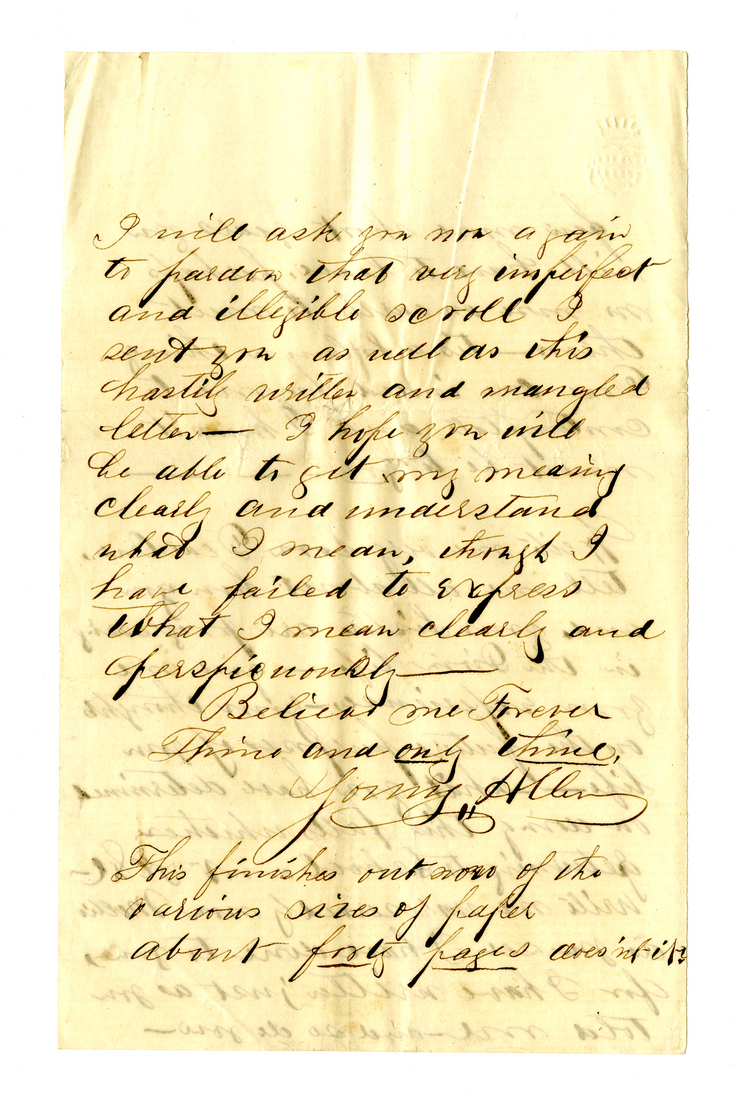 I will ask you now again
to pardon that very imperfect
and illegible scroll I
sent you as well as this
hastily written and mangled
letter — I hope you will
be able to get my meaning
clearly and understand
what I mean, though I
have failed to express
what I mean clearly and
perspicuously —
Believe me Forever
Thine and only thine,
Young Allen
This finishes out now of the
various sizes of paper
about forty pages does'nt it?